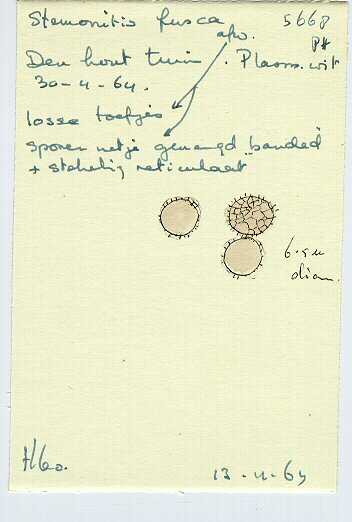 Stemonitis fusca 5668
afw. PH
Den hout tuin. Plasm. wit
30-4-64.
losse toefjes
sporen netje gemengd banded
+ stekelig reticulaat
6.5 µ
diam.
H60.
13-4-64